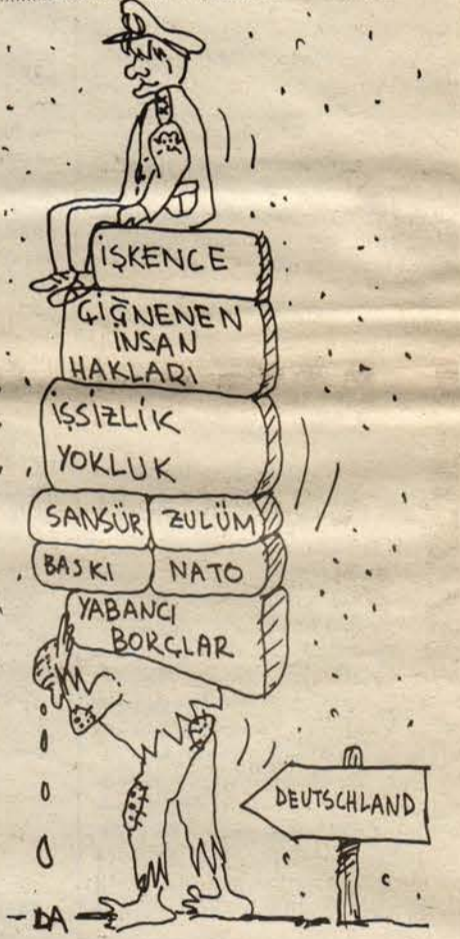 İŞKENCE
ÇİĞNENEN
İNSAN
HAKLARI
İŞSİZLİK
YOKLUK
SANSÜR ZULÜM
BASKI NATO
YABANCI
BORÇLAR
DEUTSCHLAND
DA